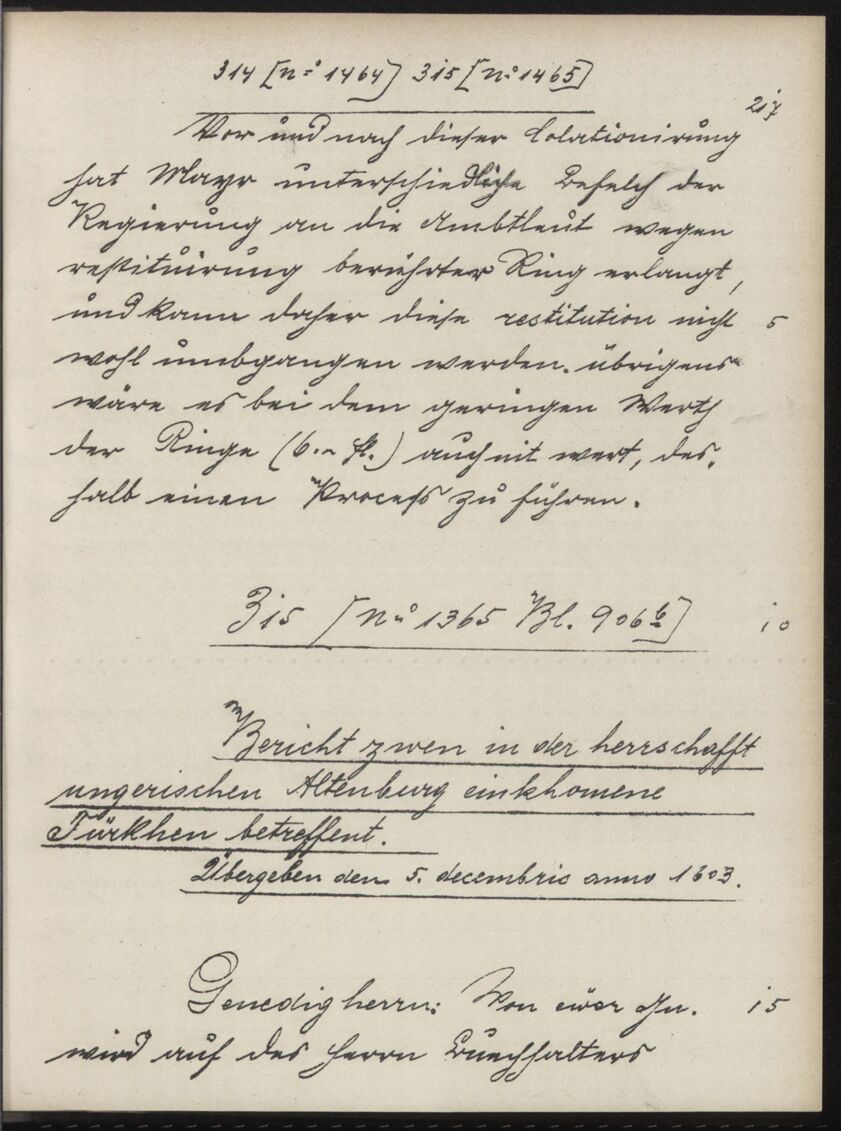 314 [No 1464] 315 [No 1465]
217
Vor und nach dieser Colationirung
hat Mayr unterschiedliche Befelch der
Regierung an die Ambtleut wegen
restituirung berührter Ring erlangt,
und kann daher diese restitution nicht 5
wohl umbgangen werden. übrigens
wäre es bei dem geringen Werth
der Ringe (6.- fl.) auch nit wert, des-
halb einen Process zu führen.
315 [No 1365 Bl. 906b] 10
Bericht zwen in der herrschafft
ungerischen Altenburg einkhomene
Türkhen betreffent.
Übergeben den 5. decembris anno 1603.
Genedig herrn: Von eüer Gn. 15
wird auf des herrn Buechhalters